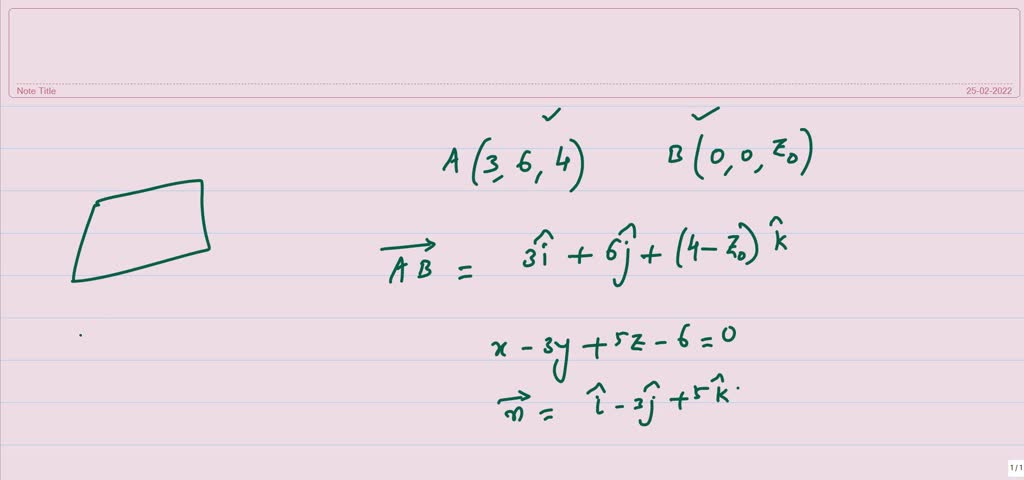 Note Title 25-02-2022
A(3, 6, 4) B(0, 0, z₀)
→AB = 3î + 6ĵ + (4 - z₀) k̂
x - 3y + 5z - 6 = 0
→n = î - 3ĵ + 5k̂
1/1